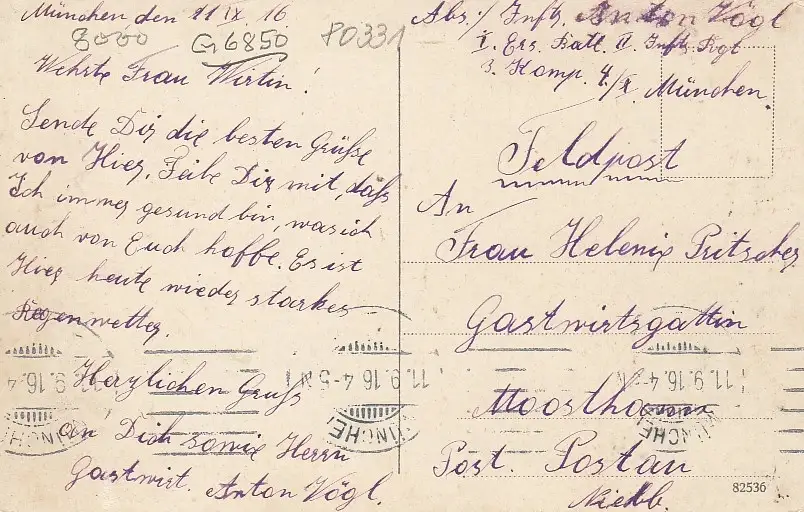 München, den 11 IX. 16.
8000 G6850 P0331
Wehrte Frau Wirtin!
Sende Dir die besten Grüße
von Hier, Teile Dir mit, daß
Ich immer gesund bin, was ich
auch von Euch hoffe. Es ist
Hier heute wieder starkes
Regenwetter.
Herzlichen Gruß
an Dich sowie Herrn
Gastwirt. Anton Vögl.
Abs:/ Inftr. Anton Vögl
I. Ers. Batl. II. Inftr. Rgt
3. Komp. 4./I. München.
Feldpost
An
Frau Helenie Pritscher
Gastwirtsgattin
Post. Postau
Niebb.
82536
11.9.16.4-5 N
MÜNCHEN